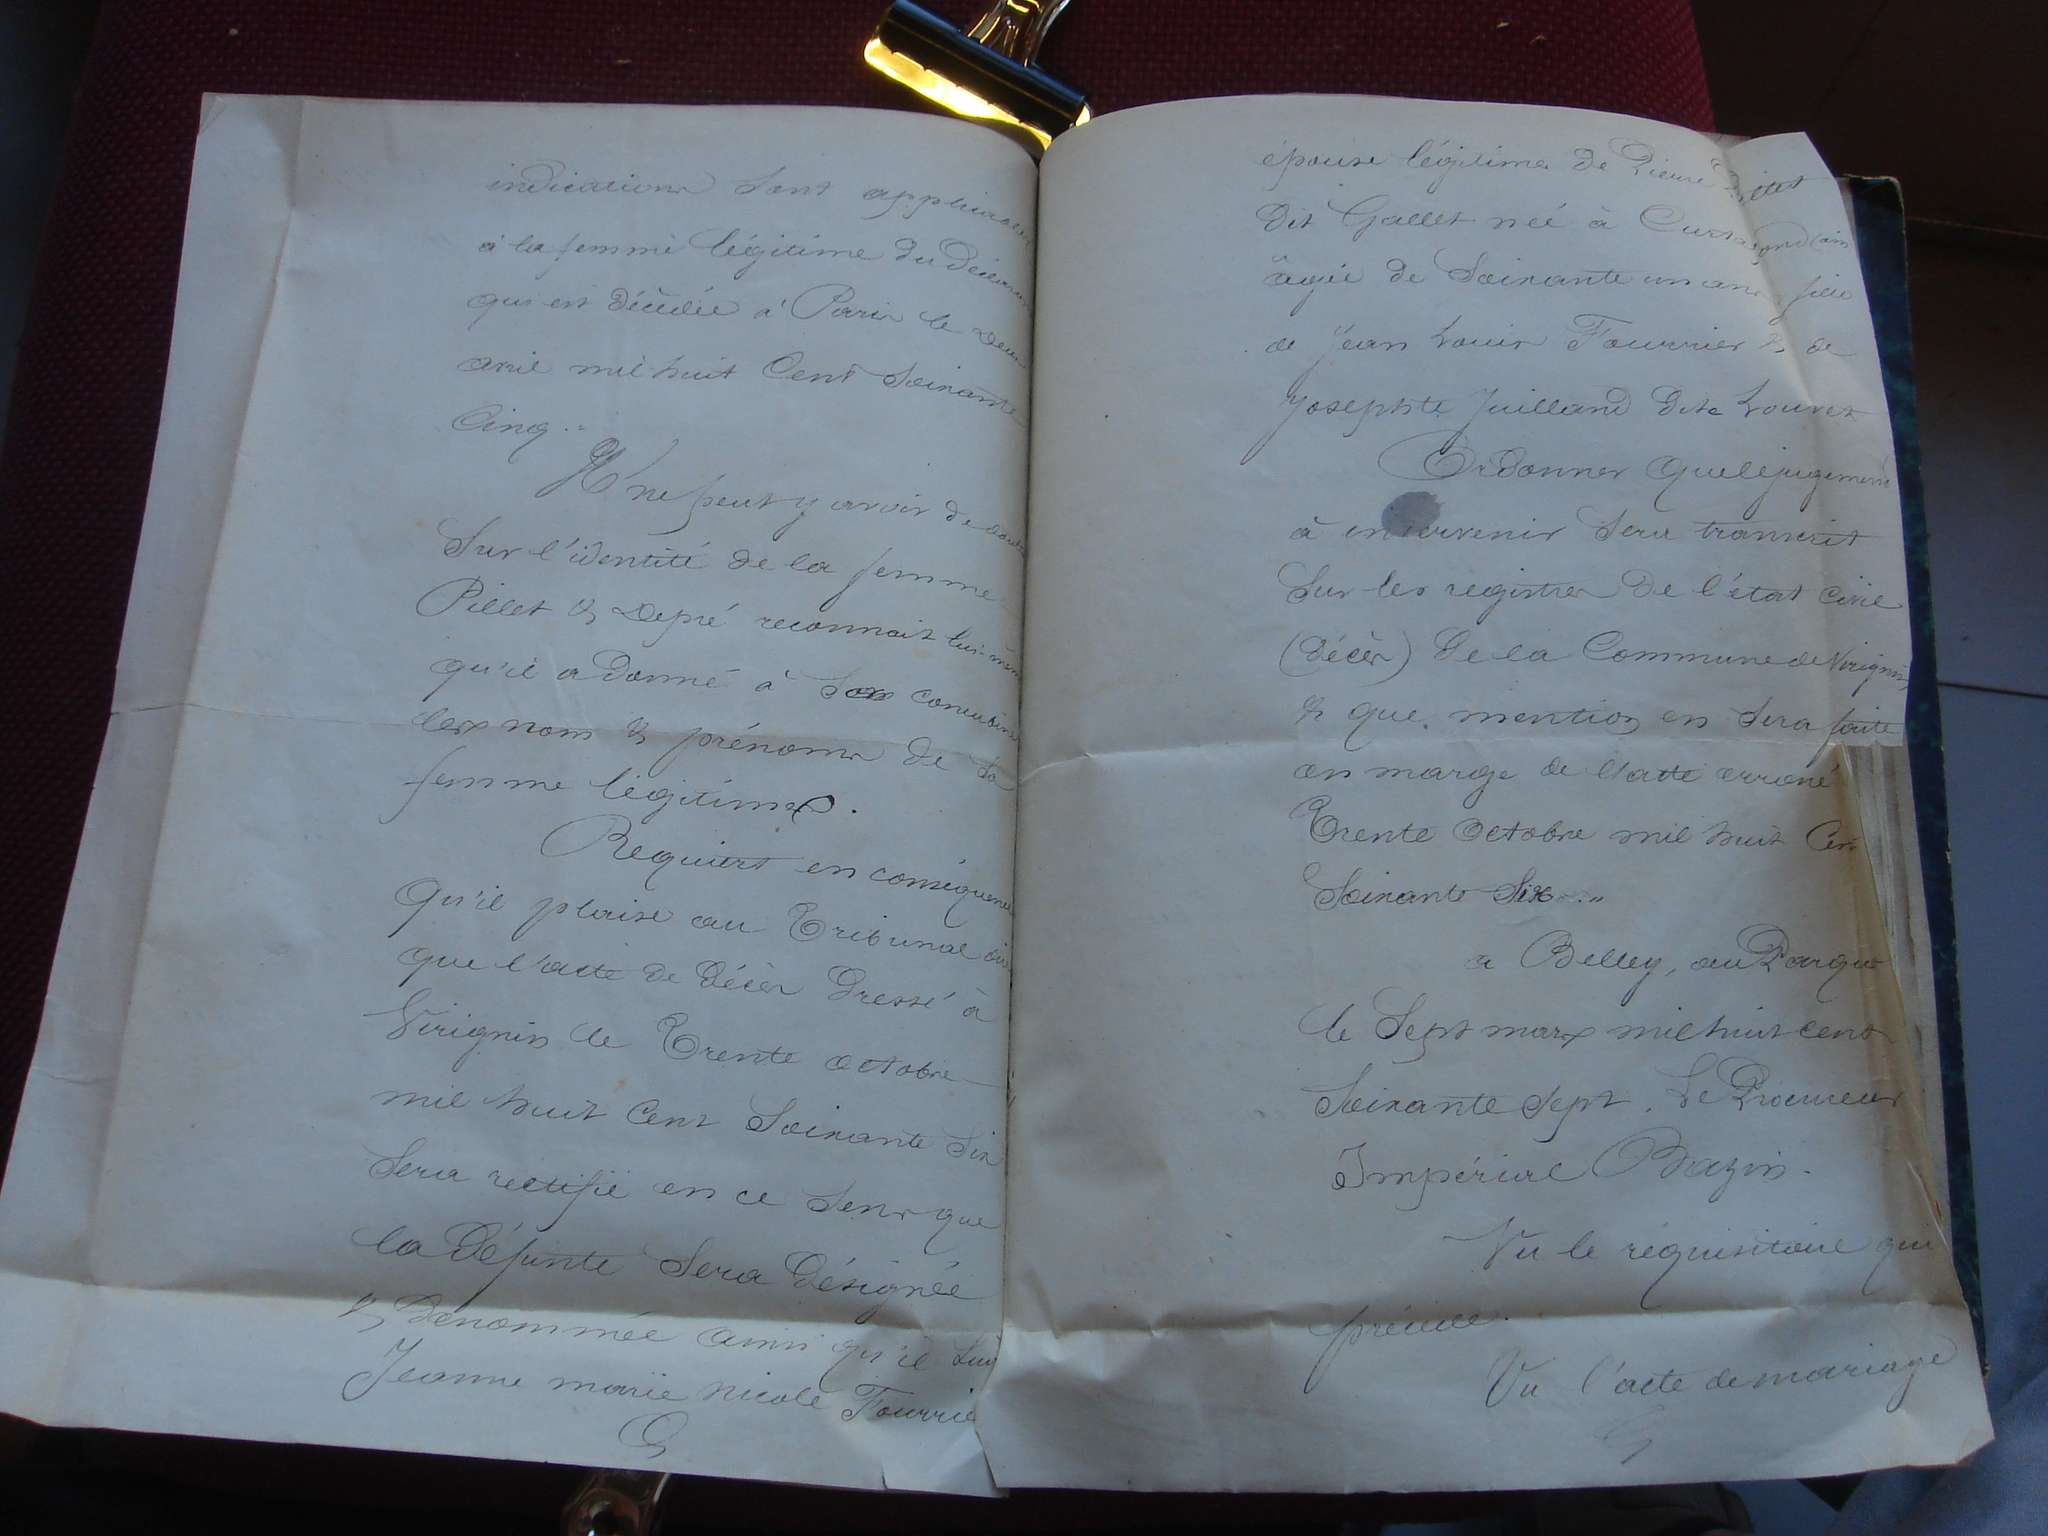 indications sont applicables
à la femme légitime du déclarant
qui est décédée à Paris le deux
avril mil huit Cent Soixante
Cinq..
Il ne peut y avoir de doute
Sur l'identité de la femme
Pillet & Depré reconnait lui-même
qu'il a donné à Sa concubine
les nom & prénoms de Sa
femme légitime.
Requiert en conséquence
qu'il plaise au Tribunal dire
que l'acte de décès dressé à
Virignin le Trente octobre
mil huit Cent Soixante Six
Sera rectifié en ce Sens que
la Défunte Sera désignée
& dénommée ainsi qu'il Suit
Jeanne marie Nicole Fourrier
épouse légitime de Pierre
dit Gallet née à (ain
agée de Soixante un ans, fille
de Jean Louis Fourrier & de
Josephte Juilland dite Louvet
Ordonner que le jugement
à intervenir Sera transcrit
Sur les registres de l'état civil
(décès) de la Commune de Virignin
& que mention en Sera faite
en marge de l'acte erroné
Trente Octobre mil huit Cent
Soixante Six..
a Belley, au Parquet
le Sept mars mil huit cent
Soixante Sept. Le Procureur
Impérial Bazin.
Vu le réquisitoire qui
précède.
Vu l'acte de mariage